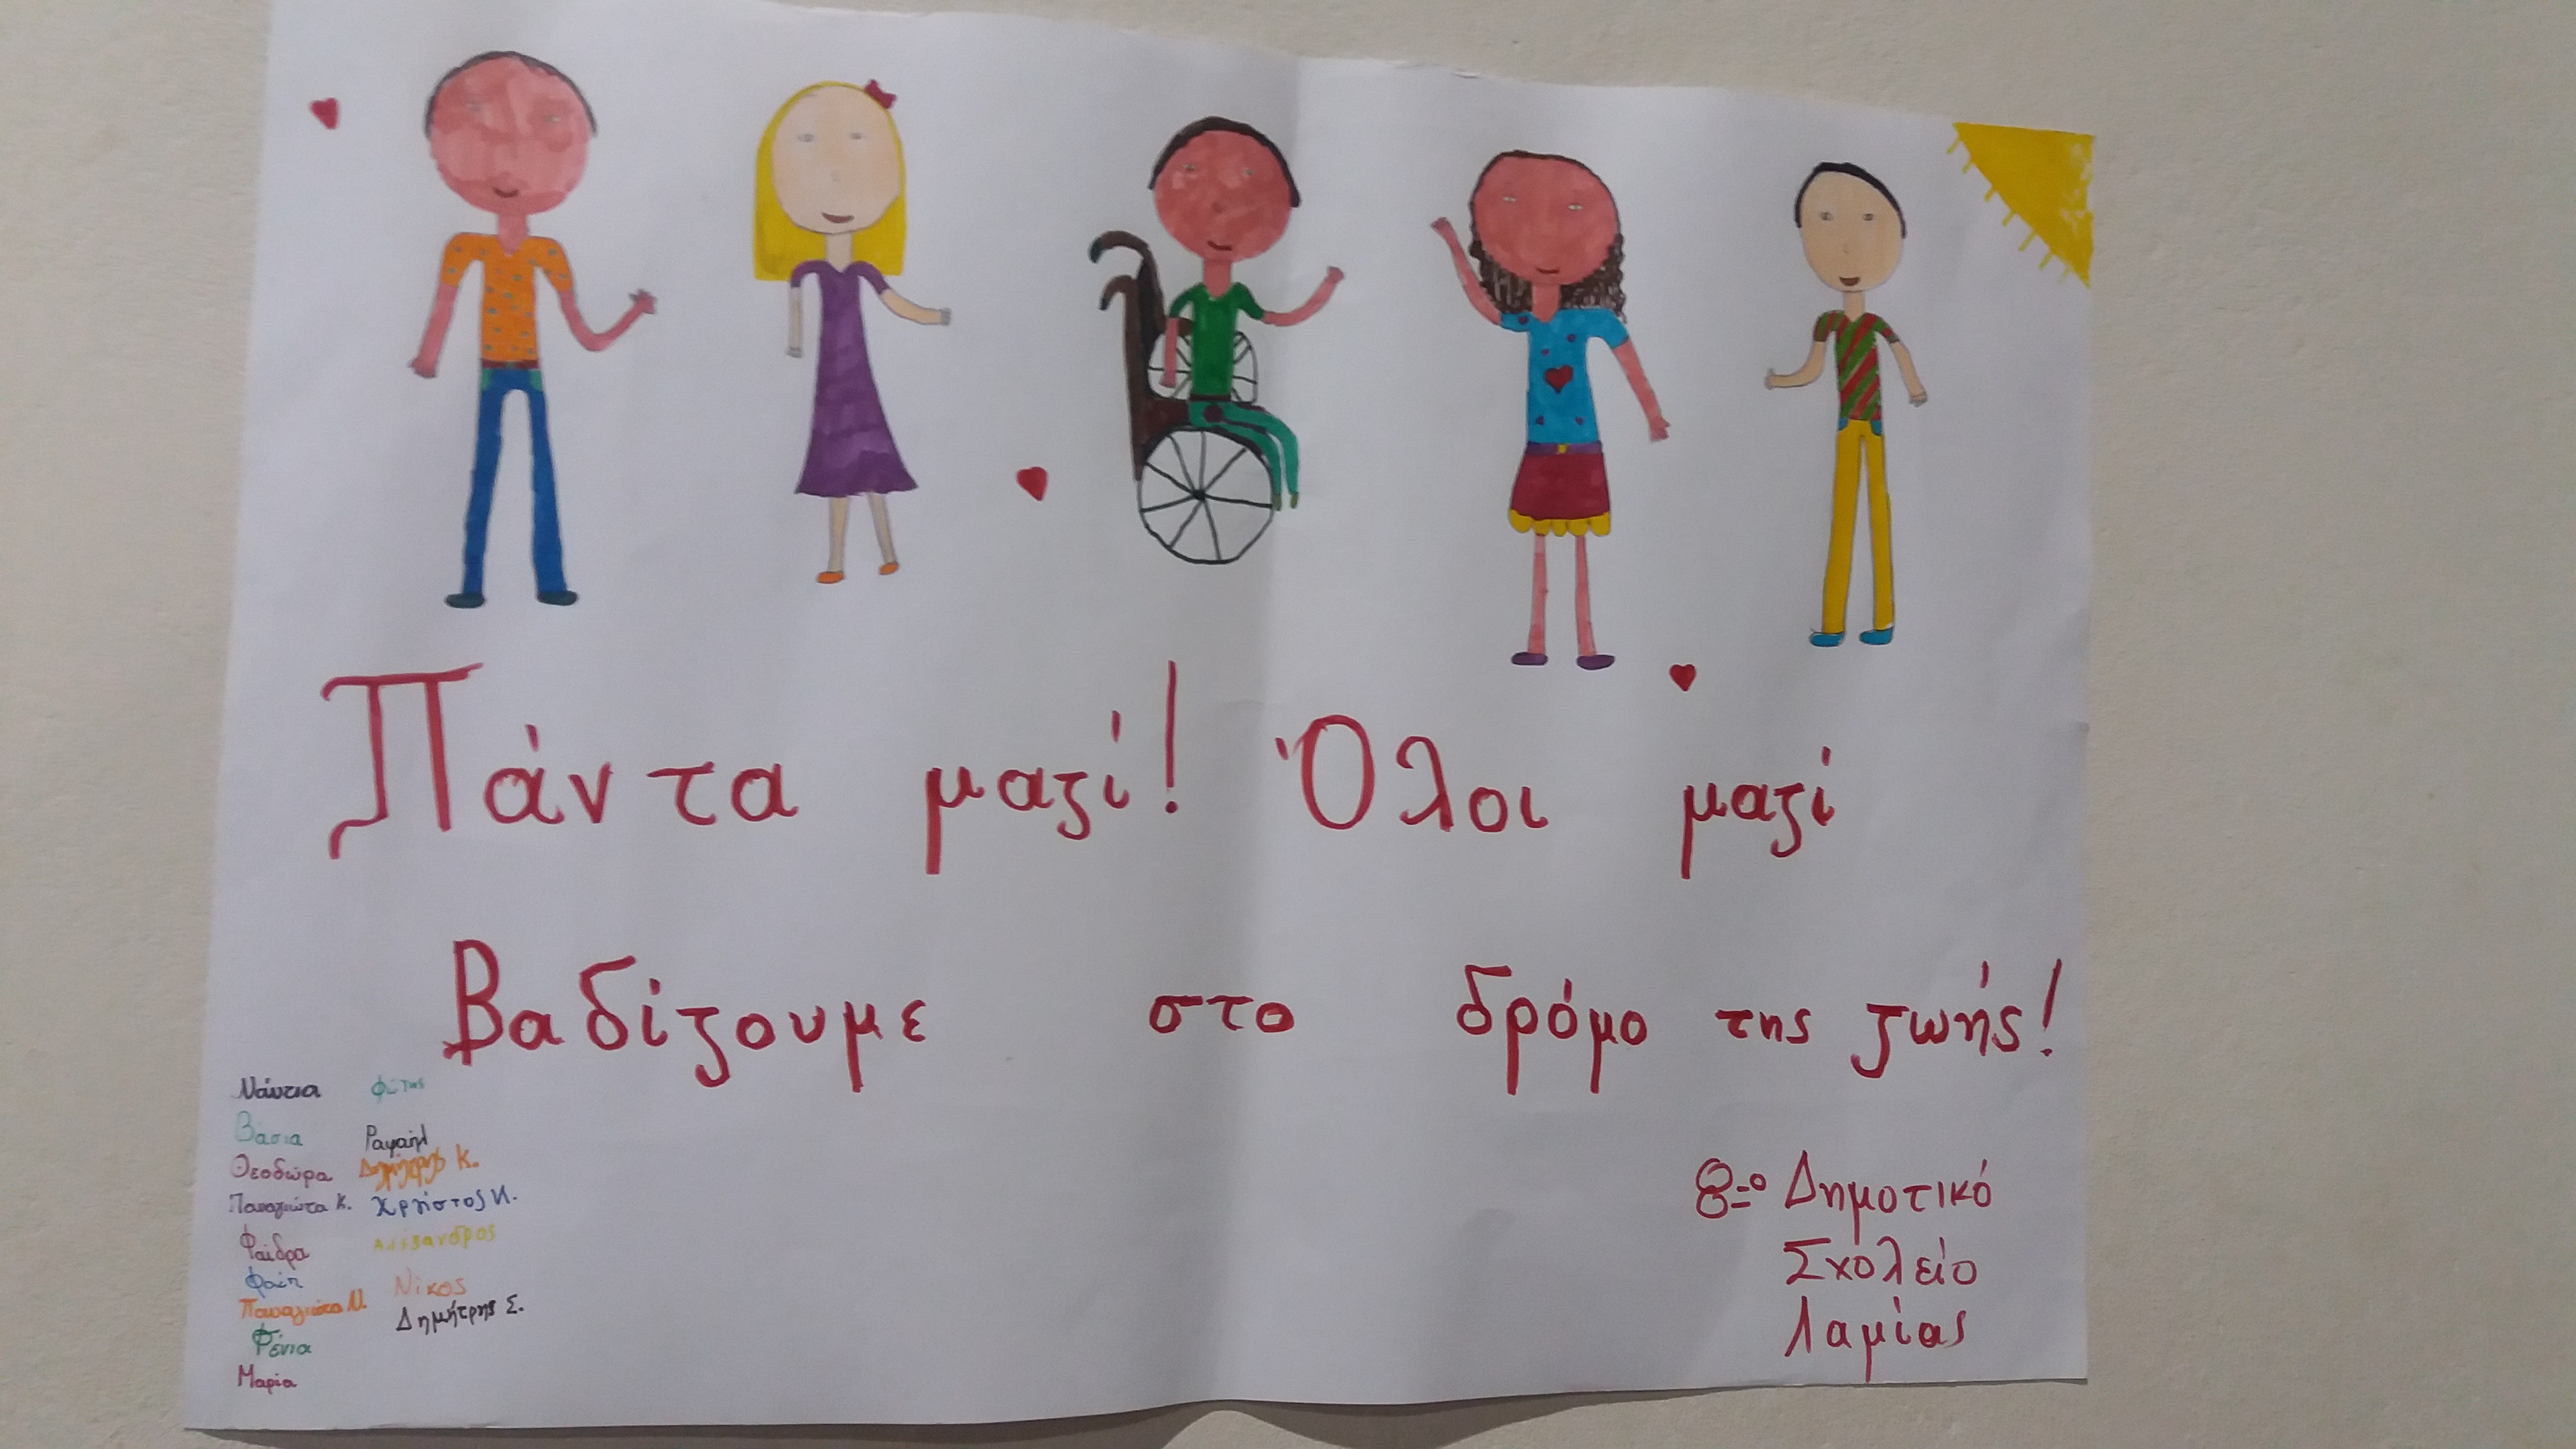 Πάντα μαζί! Όλοι μαζί
Βαδίζουμε στο δρόμο της ζωής!
Νάντια
Βάσια
Θεοδώρα
Παναγιώτα Κ.
Φαίδρα
Φαίη
Παναγιώτα Ν.
Φένια
Μαρία
Φώτης
Ραφαήλ
Δημήτρης Κ.
Χρήστος Κ.
Αλέξανδρος
Νίκος
Δημήτρης Σ.
8ο Δημοτικό
Σχολείο
Λαμίας